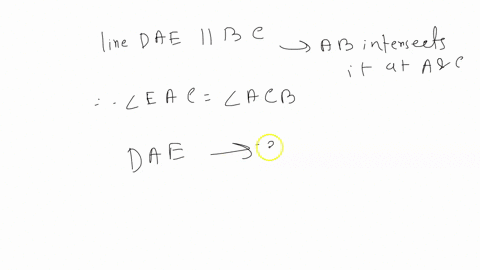 line DAE || BC → AB intersects
it at A & C
∴ ∠EAC = ∠ACB
DAE →